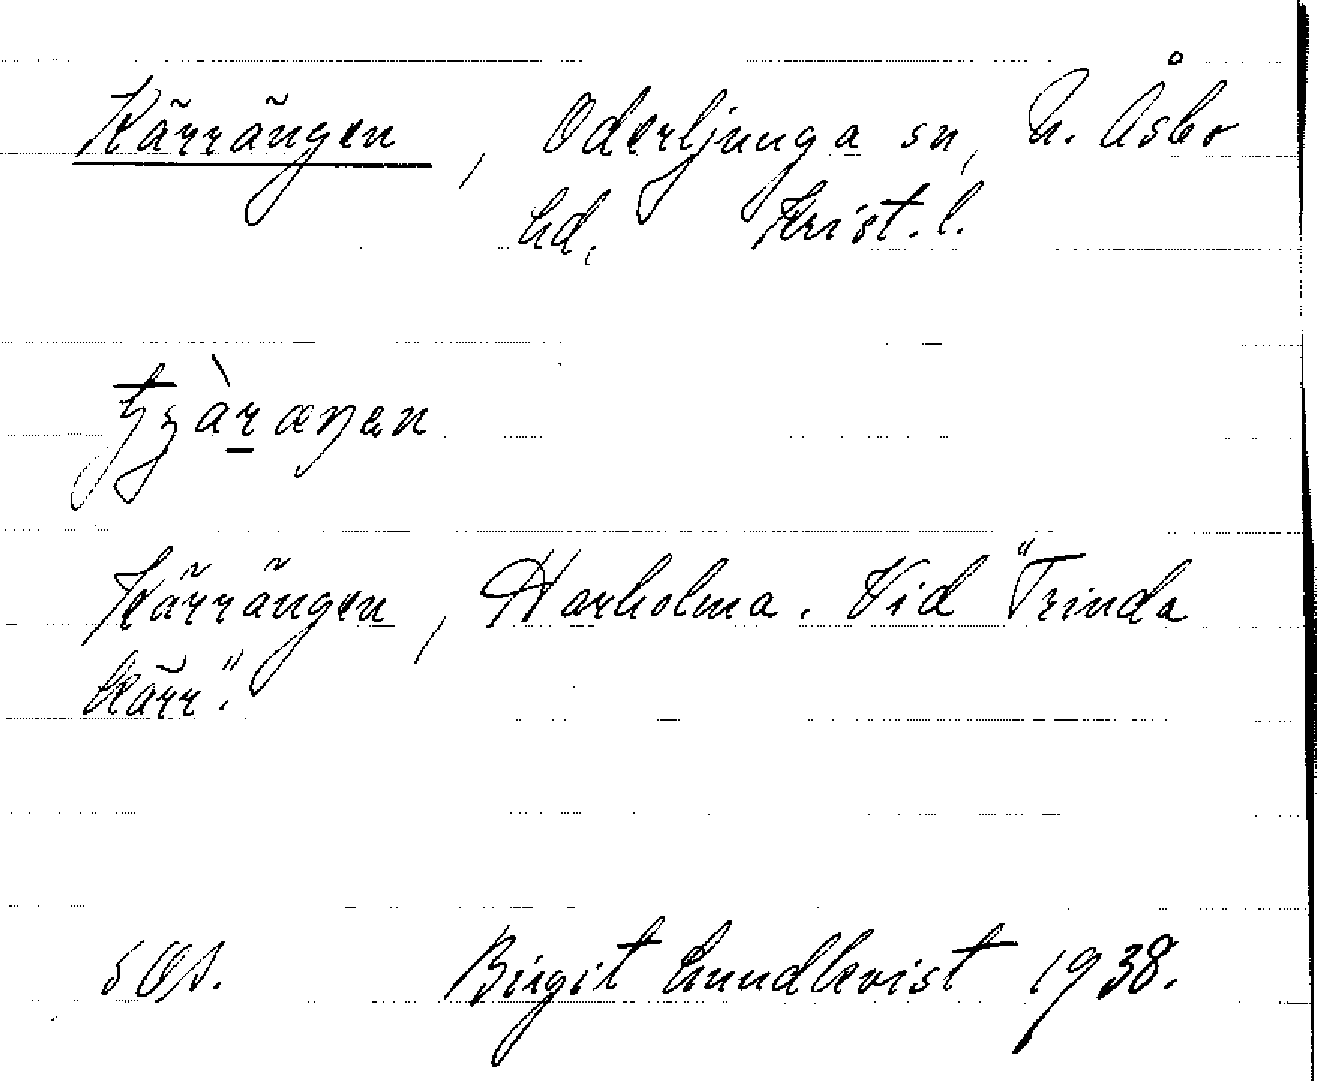 Kärrängen, Oderljunga sn, N. Åsbo
hd. Krist. l.
Kärrängen, Harholma. Vid "Trinda
kärr".
Birgit Lundkvist 1938.